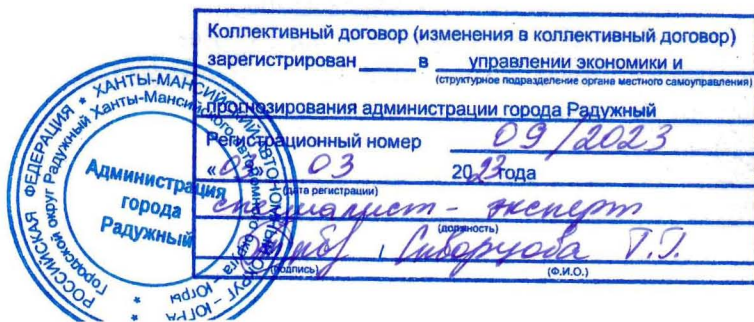 Коллективный договор (изменения в коллективный договор)
зарегистрирован ____ в управлении экономики и
(структурное подразделение органа местного самоуправления)
прогнозирования администрации города Радужный
Регистрационный номер 09/2023
« 03 2023 года
(дата регистрации)
специалист - эксперт
(должность)
(подпись) (Ф.И.О.)
РОССИЙСКАЯ ФЕДЕРАЦИЯ * ХАНТЫ-МАНСИЙСКИЙ АВТОНОМНЫЙ ОКРУГ – ЮГРА *
Городской округ Радужный Ханты-Мансийского автономного округа – Югры *
Администрация
города
Радужный